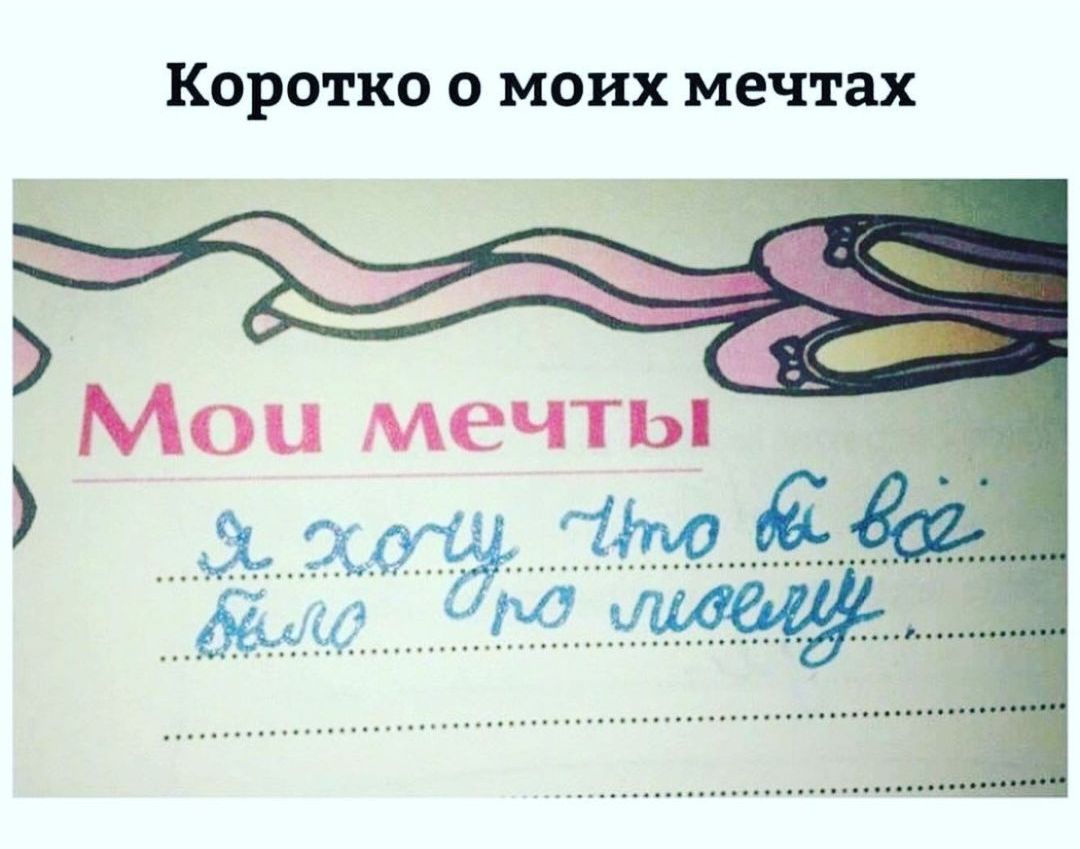 Коротко о моих мечтах
Мои мечты
Я хочу что бы всё
было по моему.